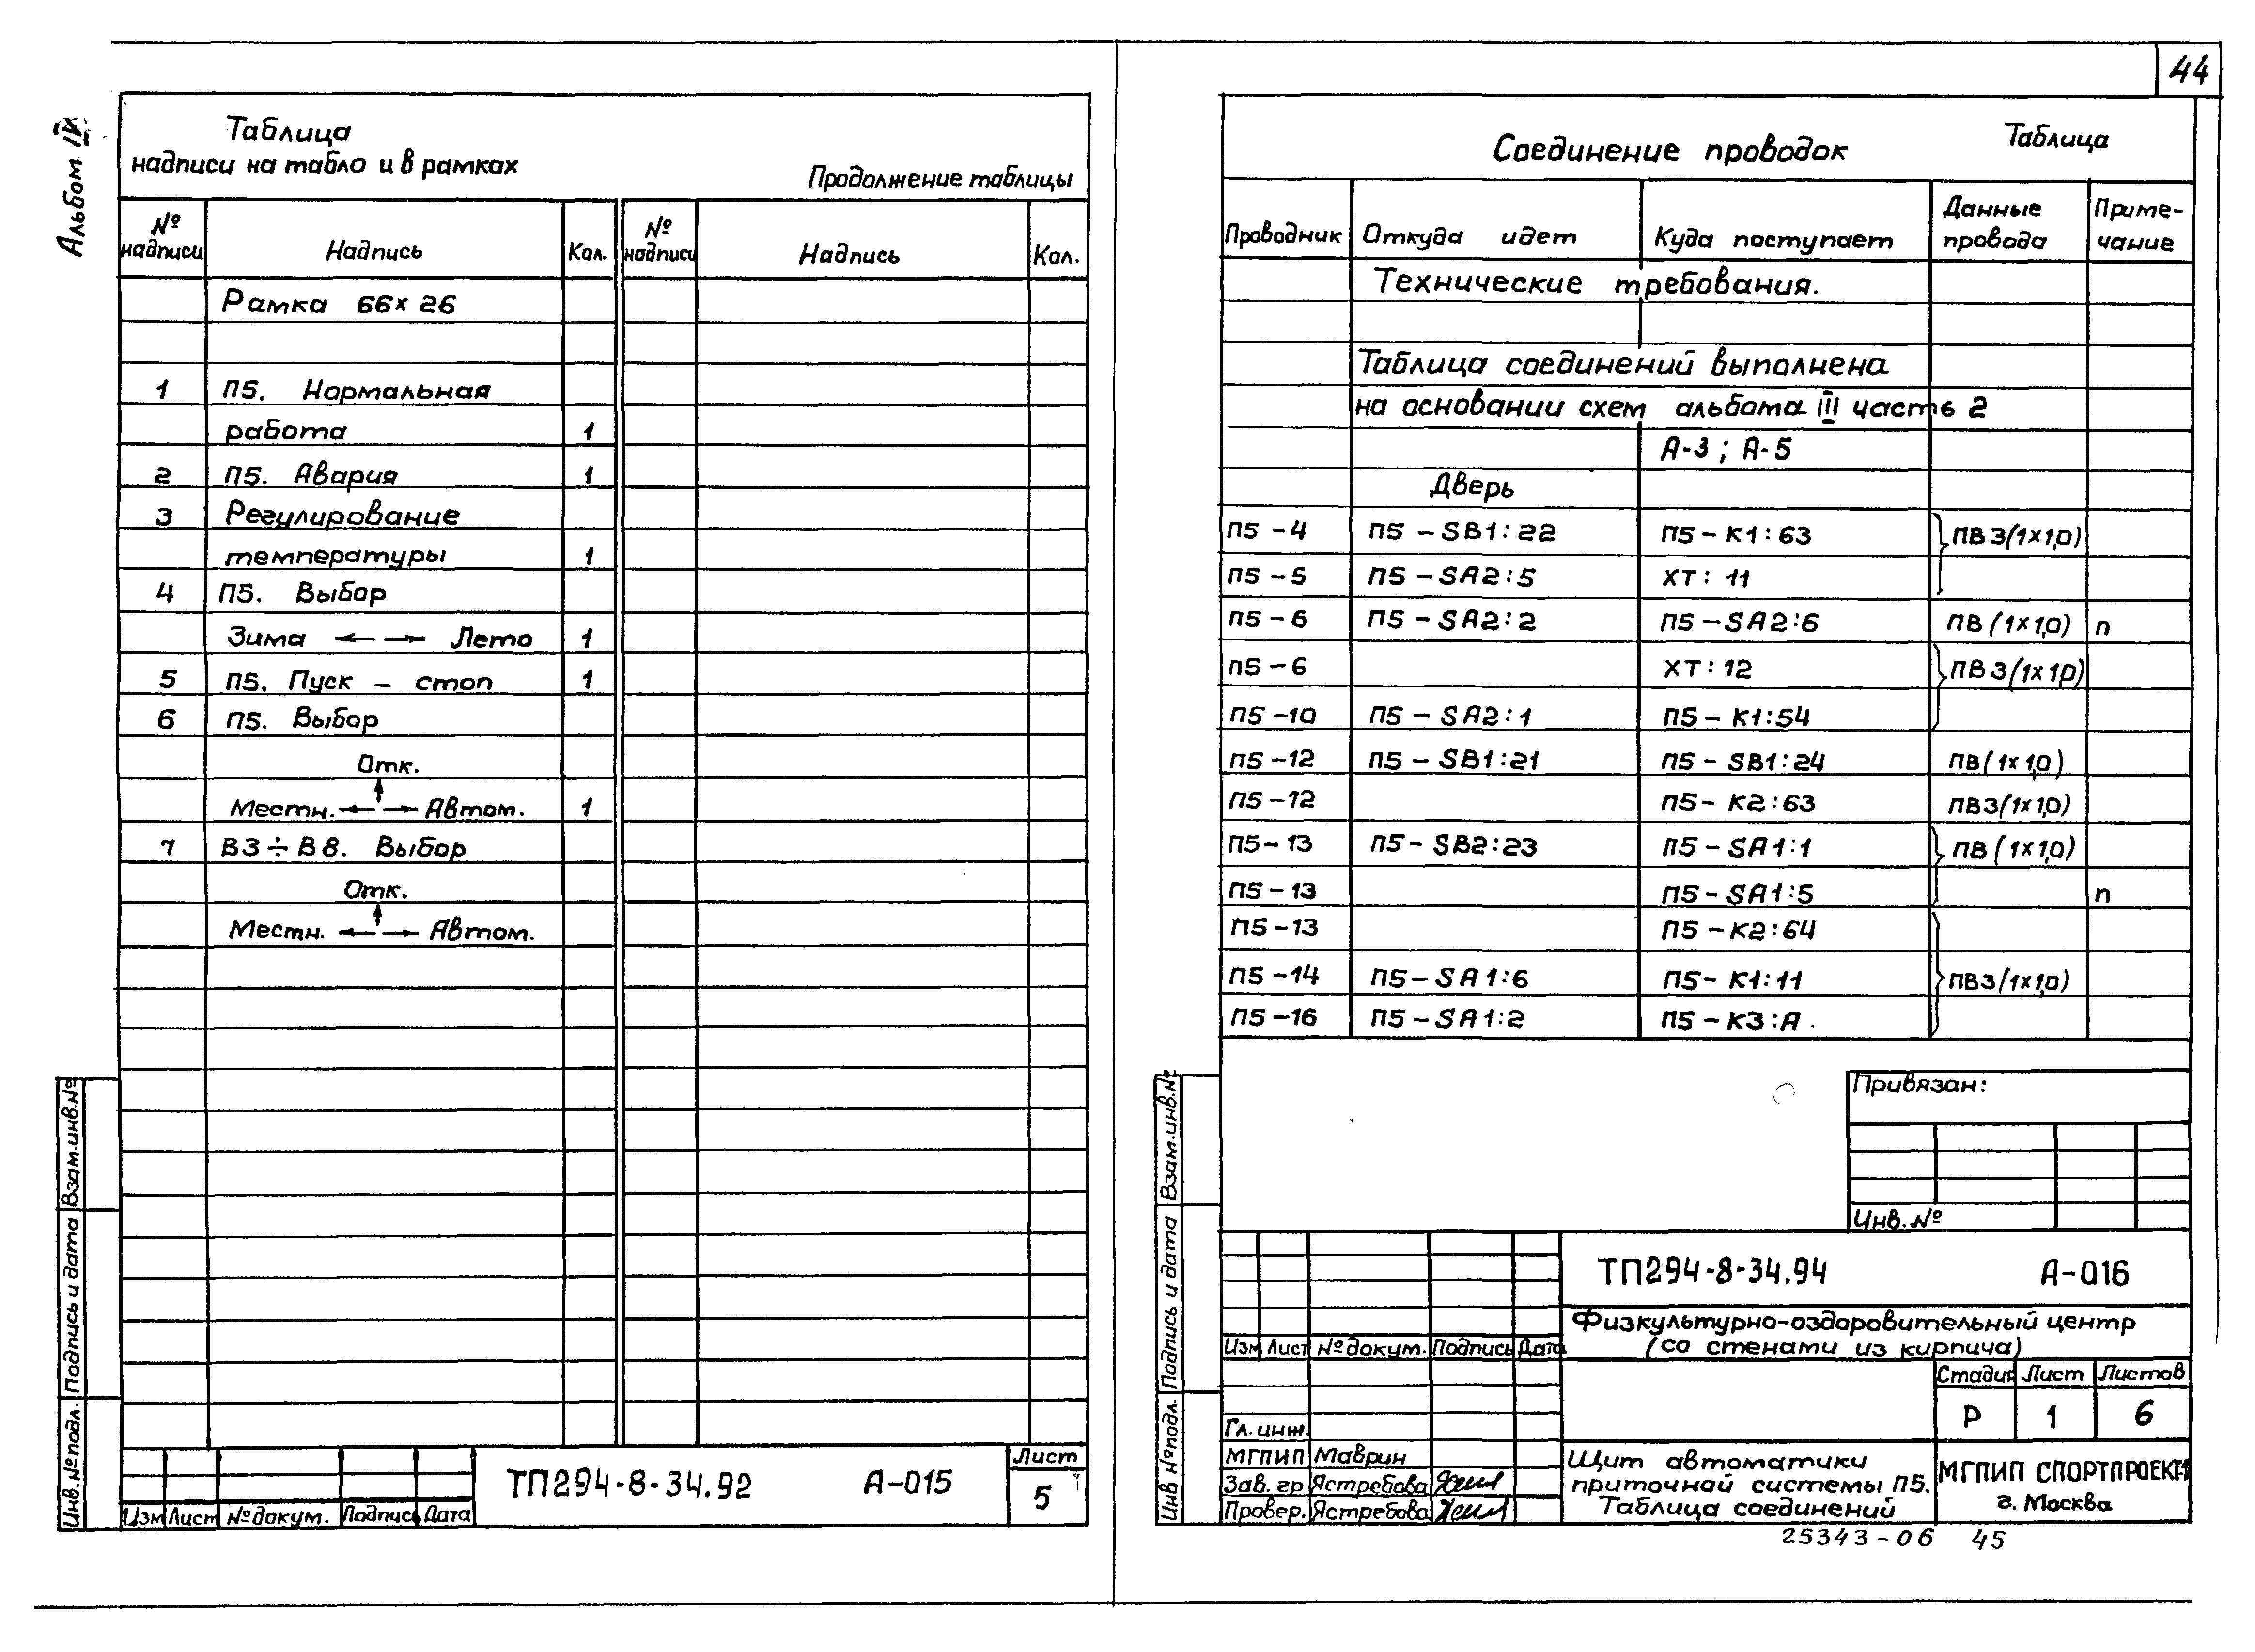 44
Альбом IV
Таблица
надписи на табло и в рамках
Продолжение таблицы
№ надписи Надпись Кол. № надписи Надпись Кол.
Рамка 66×26
1 П5. Нормальная
работа 1
2 П5. Авария 1
3 Регулирование
температуры 1
4 П5. Выбор
Зима ← → Лето 1
5 П5. Пуск – стоп 1
6 П5. Выбор
Отк.
↑
Местн. ← → Автом. 1
7 В3÷В8. Выбор
Отк.
↑
Местн. ← → Автом.
Инв. № подл. Подпись и дата Взам. инв. №
Изм Лист № докум. Подпись Дата
ТП294-8-34.92 А-015
Лист
5
Таблица
Соединение проводок
Проводник Откуда идет Куда поступает Данные провода Примечание
Технические требования.
Таблица соединений выполнена
на основании схем альбома III часть 2
А-3; А-5
Дверь
П5-4 П5-SB1:22 П5-К1:63 ПВ3(1×1,0)
П5-5 П5-SA2:5 ХТ:11
П5-6 П5-SA2:2 П5-SA2:6 ПВ(1×1,0) п
П5-6 ХТ:12 ПВ3(1×1,0)
П5-10 П5-SA2:1 П5-К1:54
П5-12 П5-SB1:21 П5-SB1:24 ПВ(1×1,0)
П5-12 П5-К2:63 ПВ3(1×1,0)
П5-13 П5-SB2:23 П5-SA1:1 ПВ(1×1,0)
П5-13 П5-SA1:5 п
П5-13 П5-К2:64
П5-14 П5-SA1:6 П5-К1:11 ПВ3(1×1,0)
П5-16 П5-SA1:2 П5-К3:А
Привязан:
Инв. №
Инв № подл. Подпись и дата Взам. инв. №
ТП294-8-34.94 А-016
Физкультурно-оздоровительный центр
(со стенами из кирпича)
Изм Лист № докум. Подпись Дата
Стадия Лист Листов
Р 1 6
Гл. инж.
МГПИП Маврин
Зав. гр Ястребова
Провер. Ястребова
Щит автоматики
приточной системы П5.
Таблица соединений
МГПИП СПОРТПРОЕКТ-1
г. Москва
25343-06 45